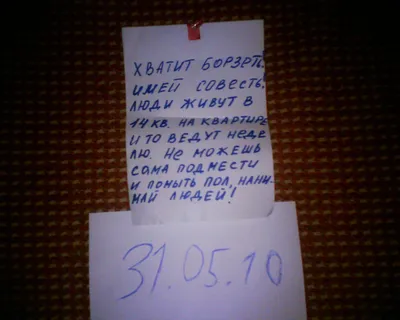 ХВАТИТ БОРЗЕТЬ
ИМЕЙ СОВЕСТЬ,
ЛЮДИ ЖИВУТ В
14 КВ. НА КВАРТИРЕ
И ТО ВЕДУТ НЕДЕ
ЛЮ. НЕ МОЖЕШЬ
САМА ПОДМЕСТИ
И ПОМЫТЬ ПОЛ, НАНИ-
МАЙ ЛЮДЕЙ!
31.05.10